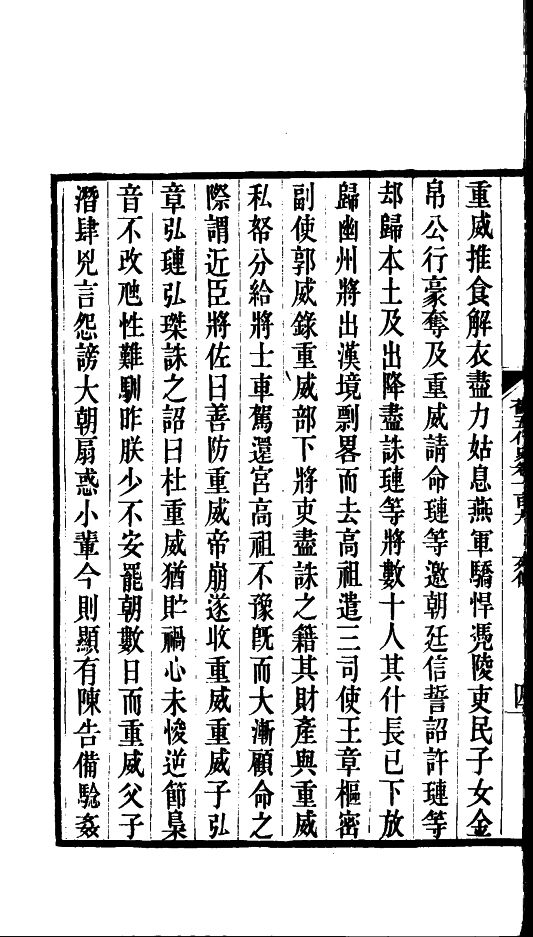 重威推食解衣盡力姑息燕軍驕悍憑陵吏民子女金
帛公行豪奪及重威請命璉等邀朝廷信誓詔許璉等
却歸本土及出降盡誅璉等將數十人其什長已下放
歸幽州將出漢境剽畧而去高祖遣三司使王章樞密
副使郭威錄重威部下將吏盡誅之籍其財產與重威
私帑分給將士車駕還宮高祖不豫旣而大漸顧命之
際謂近臣將佐曰善防重威帝崩遂收重威重威子弘
章弘璉弘璨誅之詔曰杜重威猶貯禍心未悛逆節梟
音不改虺性難馴昨朕少不安罷朝數日而重威父子
潛肆兇言怨謗大朝扇惑小輩今則顯有陳告備驗姦
舊五代史卷一百九